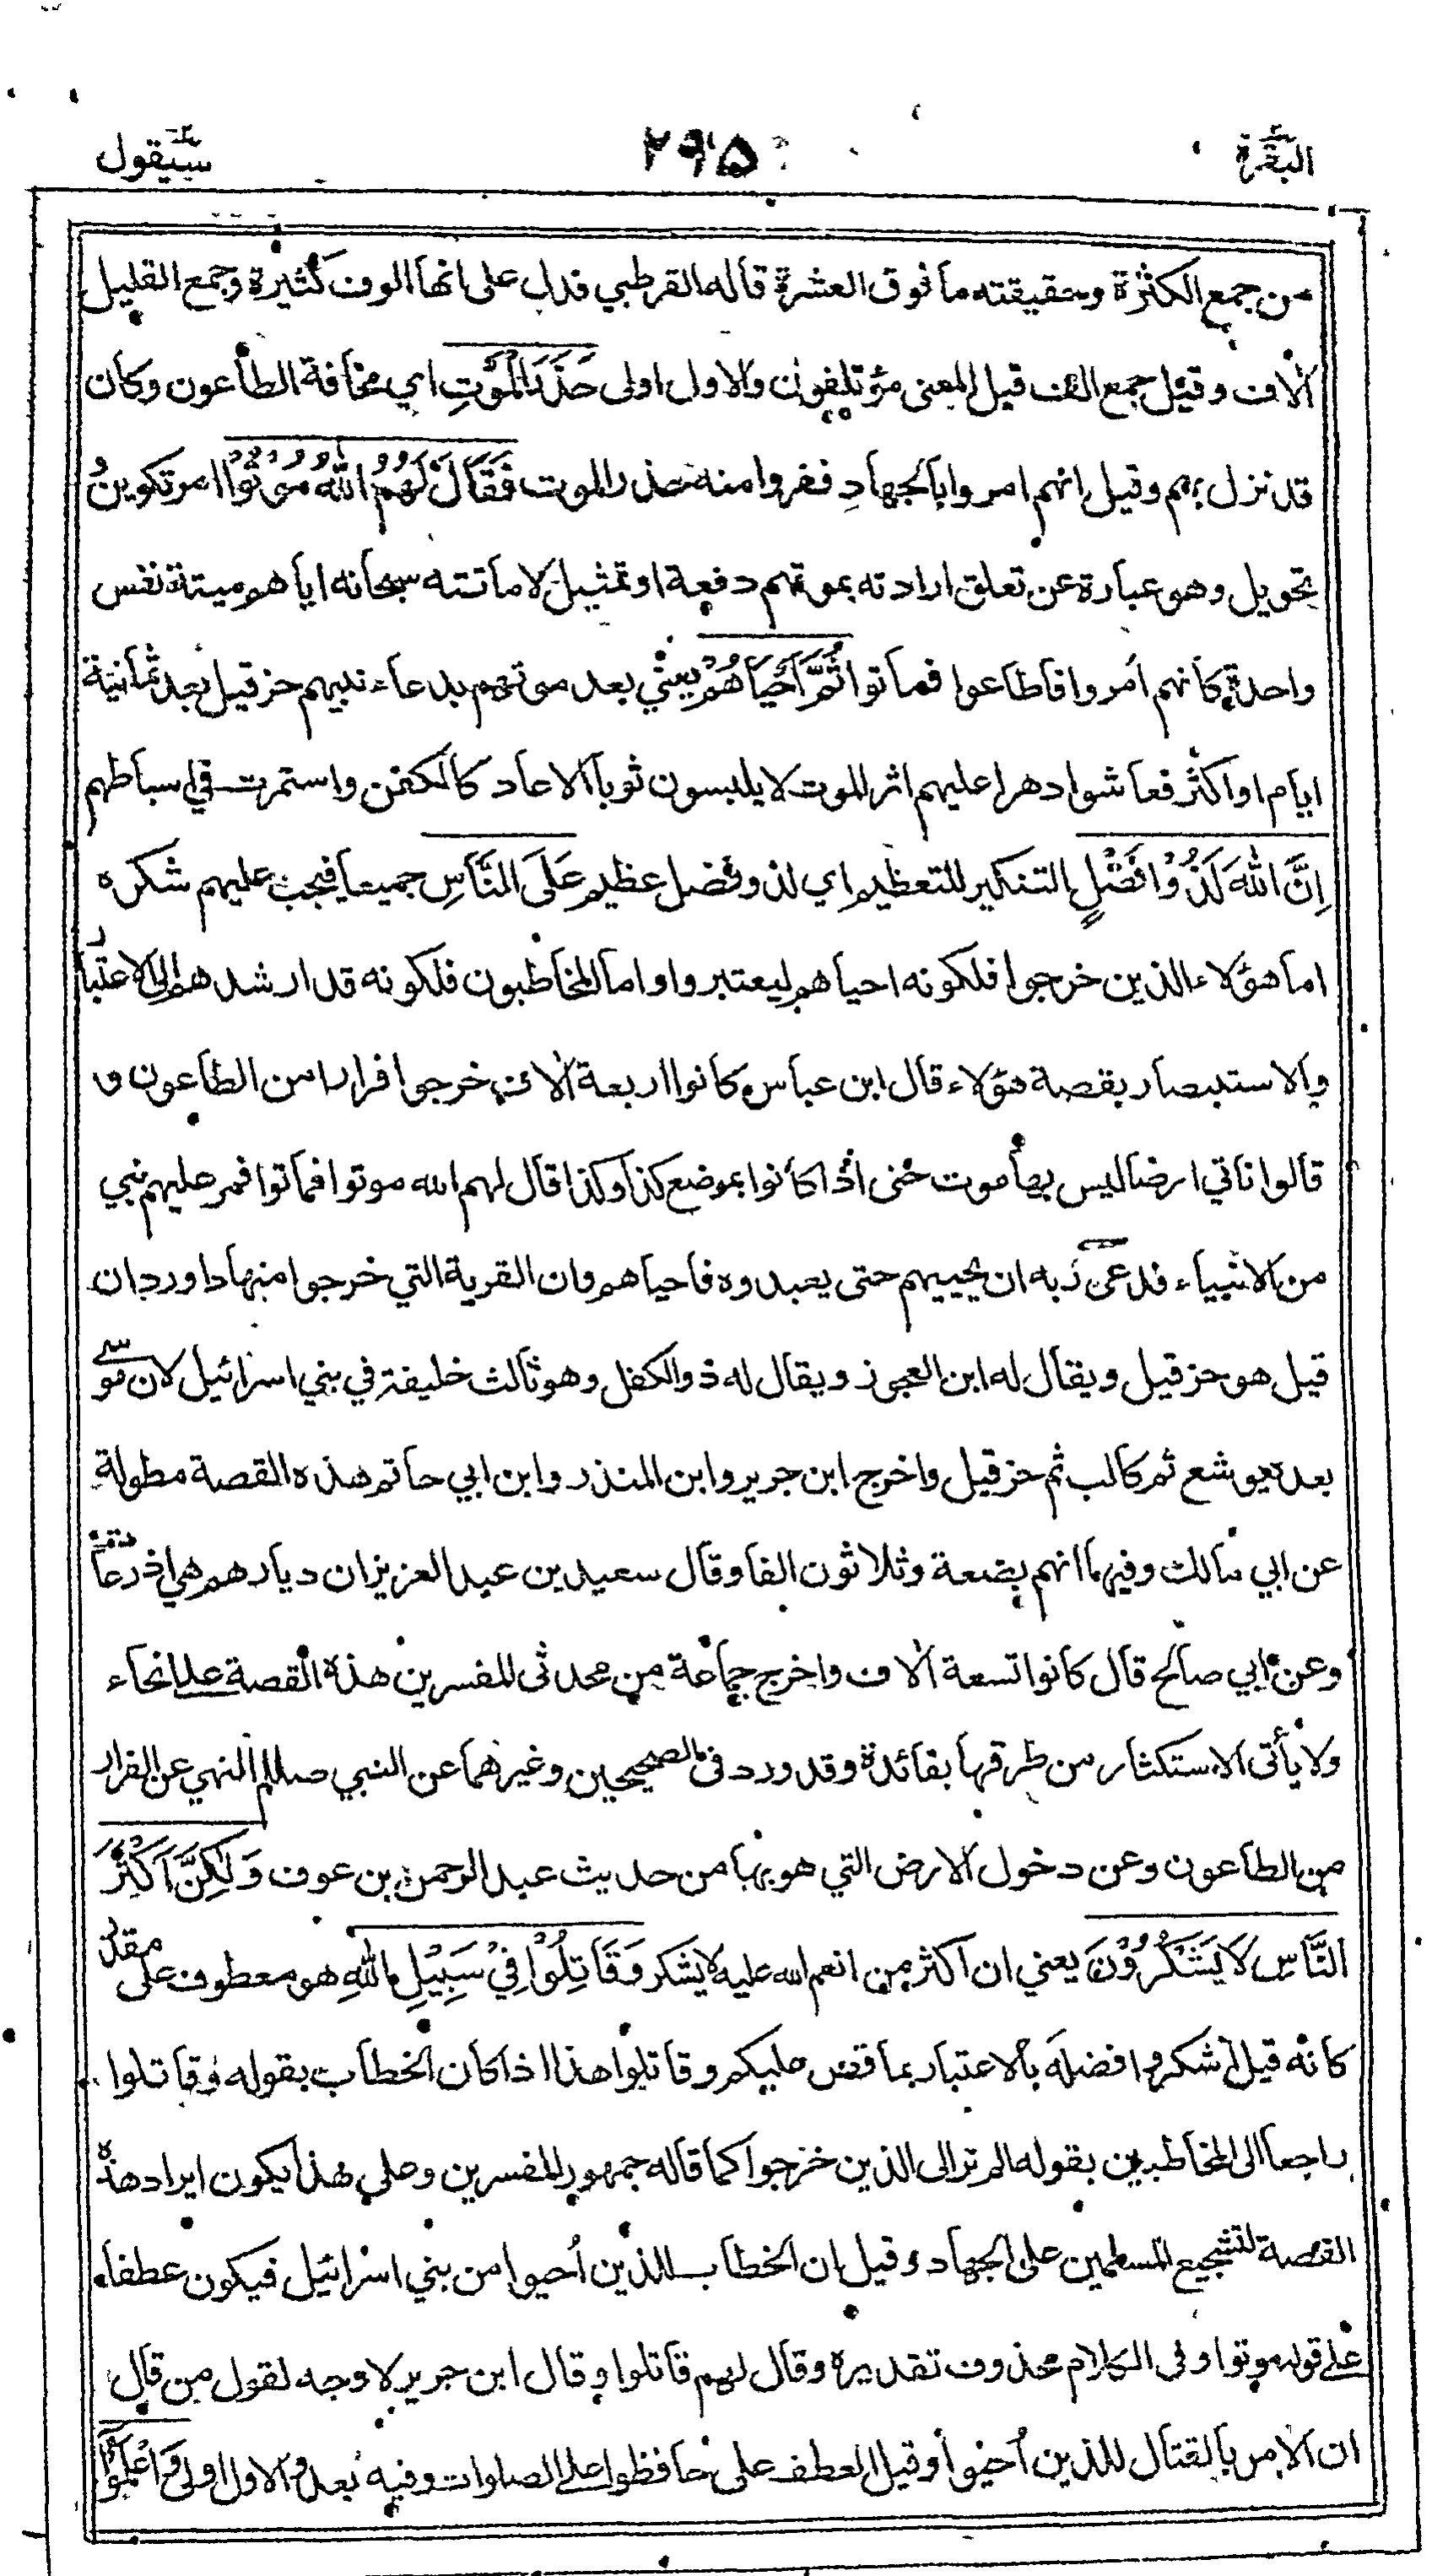 البقرة ٢٩٥ سيقول
من جمع الكثرة وحقيقته ما فوق العشرة قاله القرطبي فدل على انها الوف كثيرة وجمع القليل
اٰلاف وقيل جمع الف قيل المعنى مؤتلفون والاول اولى حَذَرَ الْمَوْتِ اي مخافة الطاعون وكان
قد نزل بهم وقيل انهم امروا بالجهادِ ففروا منه حذر الموت فَقَالَ لَهُمُ اللّٰهُ مُوْتُوْا امر تكوينُ
تحويل وهو عبارة عن تعلق ارادته بموتهم دفعة او تمثيل لاماتته سبحانه اياهم ميتة نفس
واحدة كانهم اُمروا فاطاعوا فماتوا ثُمَّ اَحْيَاهُمْ يعني بعد موتهم بدعاء نبيهم حزقيل بعد ثمانية
ايام او اكثر فعاشوا دهرا عليهم اثر الموت لا يلبسون ثوبا الا عاد كالكفن واستمرت في اسباطهم
اِنَّ اللّٰهَ لَذُوْا فَضْلٍ التنكير للتعظيم اي لذو فضل عظيم عَلَى النَّاسِ جميعا فيجب عليهم شكره
اما هؤلاء الذين خرجوا فلكونه احياهم ليعتبروا واما المخاطبون فلكونه قد ارشدهم الى الاعتبار
والاستبصار بقصة هؤلاء قال ابن عباس كانوا اربعة اٰلاف خرجوا فرارا من الطاعون و
قالوا ناتي ارضا ليس بها موت حتى اذا كانوا بموضع كذا وكذا قال لهم الله موتوا فماتوا فمر عليهم نبي
من الانبياء فدعى ربه ان يحييهم حتى يعبدوه فاحياهم وان القرية التي خرجوا منها داوردان
قيل هو حزقيل ويقال له ابن العجوز ويقال له ذو الكفل وهو ثالث خليفة في بني اسرائيل لان موسى
بعده يوشع ثم كالب ثم حزقيل واخرج ابن جرير وابن المنذر وابن ابي حاتم هذه القصة مطولة
عن ابي مالك وفيها انهم بضعة وثلاثون الفا وقال سعيد بن عبد العزيز ان ديارهم هي اذرعات
وعن ابي صالح قال كانوا تسعة اٰلاف واخرج جماعة من محدثي المفسرين هذه القصة على انحاء
ولا يأتي الاستكثار من طرقها بفائدة وقد ورد في الصحيحين وغيرهما عن النبي صللم النهي عن الفرار
من الطاعون وعن دخول الارض التي هو بها من حديث عبد الرحمن بن عوف وَلٰكِنَّ اَكْثَرَ
النَّاسِ لَا يَشْكُرُوْنَ يعني ان اكثر من انعم الله عليه لا يشكر وَقَاتِلُوْا فِيْ سَبِيْلِ اللّٰهِ هو معطوف على مقدر
كانه قيل اشكروا فضله بالاعتبار بما قص عليكم وقاتلوا هذا اذا كان الخطاب بقوله وقاتلوا
راجعا الى المخاطبين بقوله الم تر الى الذين خرجوا كما قاله جمهور المفسرين وعلى هذا يكون ايراد هذه
القصة لتشجيع المسلمين على الجهاد وقيل ان الخطاب للذين اُحيوا من بني اسرائيل فيكون عطفا
على قوله موتوا وفي الكلام محذوف تقديره وقال لهم قاتلوا وقال ابن جرير لا وجه لقول من قال
ان الامر بالقتال للذين اُحيوا وقيل العطف على حافظوا على الصلوات وفيه بُعد والاول اولى وَاعْلَمُوْا